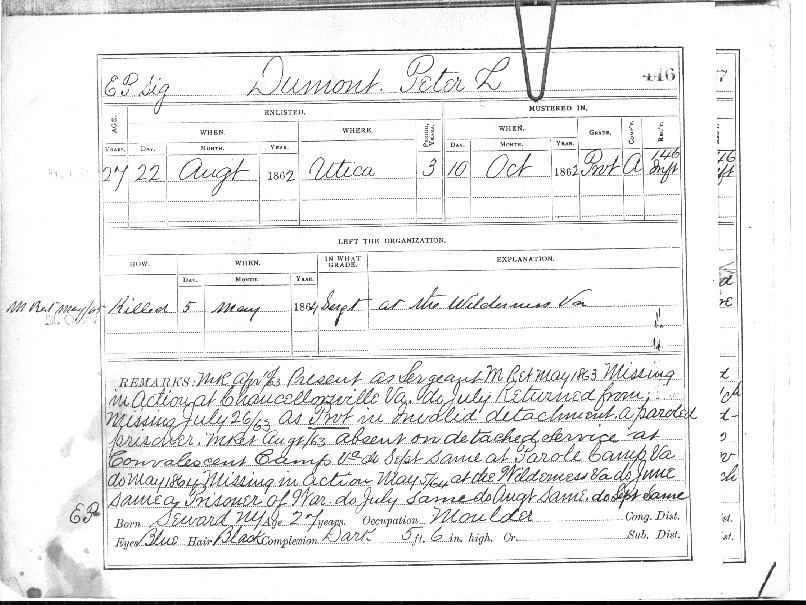 E P Sig Dumont. Peter L 446
ENLISTED. MUSTERED IN.
AGE. WHEN. WHERE. PERIOD, YEARS. WHEN. GRADE. COMP'Y. REG'T.
YEARS. DAY. MONTH. YEAR. DAY. MONTH. YEAR.
27 22 Augt 1862 Utica 3 10 Oct 1862 Pvt A 146 Inft
LEFT THE ORGANIZATION.
HOW. WHEN. IN WHAT GRADE. EXPLANATION.
DAY. MONTH. YEAR.
M Ret May/65 Killed 5 May 1864 Sergt at the Wilderness Va
REMARKS: MR Apr 10/63 Present as Sergeant M Ret May 1863 Missing
in Action at Chancellorsville Va. do July Returned from
Missing July 26/63 as Pvt in Invalid detachment a paroled
prisoner. M Ret Augt/63 absent on detached service at
Convalescent Camp Va do Sept same at Parole Camp Va
do May 1864 Missing in Action May 5/64 at the Wilderness Va do June
same a Prisoner of War. do July same do Augt same. do Sept same
E P Born Seward NY Age 27 years. Occupation Moulder Cong. Dist.
Eyes Blue Hair Black Complexion Dark 5 ft. 6 in. high. Or Sub. Dist.